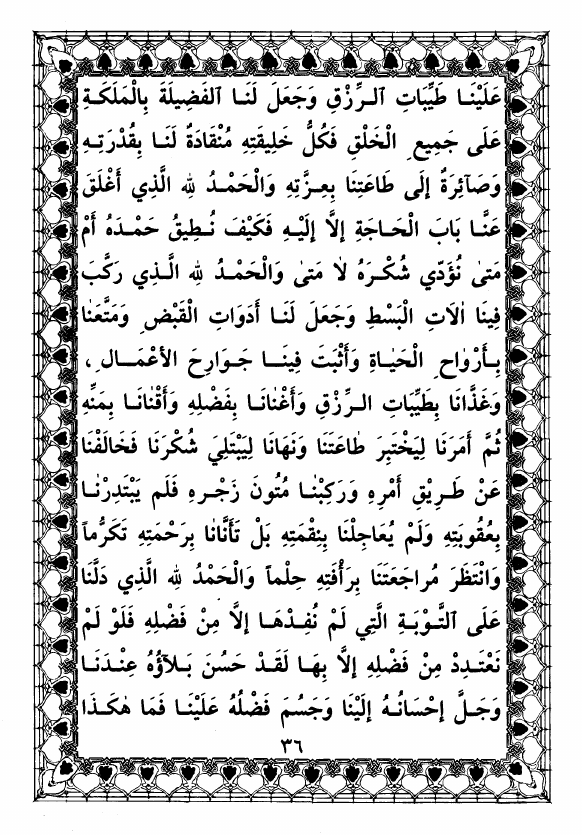 عَلَيْنَا طَيِّبَاتِ الرِّزْقِ وَجَعَلَ لَنَا الفَضِيلَةَ بِالْمَلَكَةِ
عَلَى جَمِيعِ الْخَلْقِ فَكُلُّ خَلِيقَتِهِ مُنْقَادَةٌ لَنَا بِقُدْرَتِهِ
وَصَآئِرَةٌ إِلَى طَاعَتِنَا بِعِزَّتِهِ وَالْحَمْدُ لِلهِ الَّذِي أَغْلَقَ
عَنَّا بَابَ الْحَاجَةِ إِلَّا إِلَيْهِ فَكَيْفَ نُطِيقُ حَمْدَهُ أَمْ
مَتىٰ نُؤَدِّي شُكْرَهُ لَا مَتىٰ وَالْحَمْدُ لِلهِ الَّذِي رَكَّبَ
فِينَا اٰلَاتِ الْبَسْطِ وَجَعَلَ لَنَا أَدَوَاتِ الْقَبْضِ وَمَتَّعَنٰا
بِأَرْوٰاحِ الْحَيٰاةِ وَأَثْبَتَ فِينَا جَوَارِحَ الأَعْمَالِ،
وَغَذَّانَا بِطَيِّبَاتِ الرِّزْقِ وَأَغْنٰانَا بِفَضْلِهِ وَأَقْنٰانَا بِمَنِّهِ
ثُمَّ أَمَرَنَا لِيَخْتَبِرَ طٰاعَتَنَا وَنَهَانَا لِيَبْتَلِيَ شُكْرَنَا فَخَالَفْنَا
عَنْ طَرِيْقِ أَمْرِهِ وَرَكِبْنٰا مُتُونَ زَجْرِهِ فَلَم يَبْتَدِرْنٰا
بِعُقُوبَتِهِ وَلَمْ يُعَاجِلْنَا بِنِقْمَتِهِ بَلْ تَأَنَّانٰا بِرَحْمَتِهِ تَكَرُّماً
وَانْتَظَرَ مُراجَعَتَنَا بِرَأْفَتِهِ حِلْماً وَالْحَمْدُ لِلهِ الَّذِي دَلَّنَا
عَلَى التَّوْبَةِ الَّتِي لَمْ نُفِدْهَا إِلَّا مِنْ فَضْلِهِ فَلَوْ لَمْ
نَعْتَدِدْ مِنْ فَضْلِهِ إِلَّا بِهَا لَقَدْ حَسُنَ بَلَآؤُهُ عِنْدَنَا
وَجَلَّ إِحْسَانُهُ إِلَيْنَا وَجَسُمَ فَضْلُهُ عَلَيْنَا فَمَا هٰكَذَا
٣٦